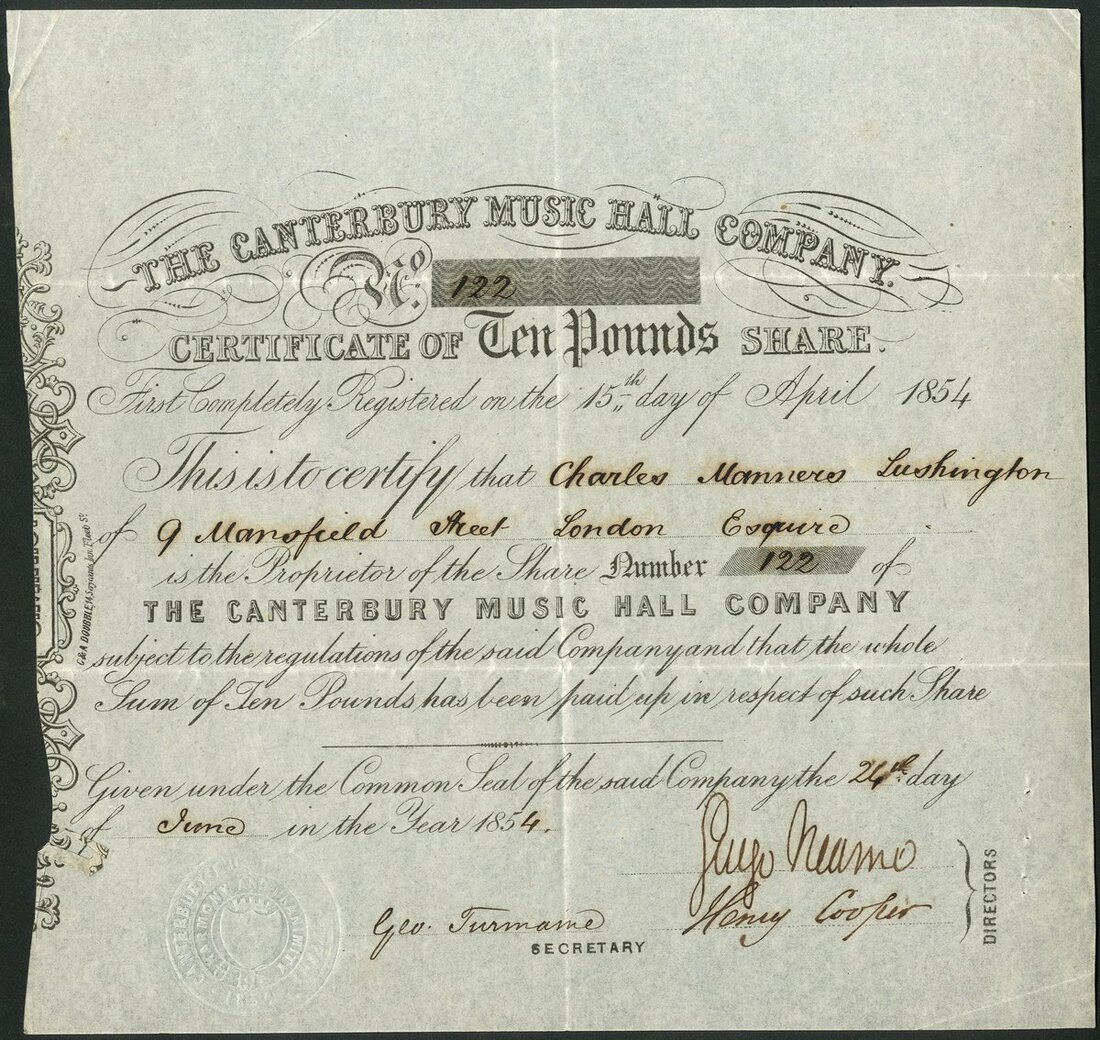 THE CANTERBURY MUSIC HALL COMPANY.
No. 122
CERTIFICATE OF Ten Pounds SHARE.
First Completely Registered on the 15th day of April 1854
This is to certify that Charles Manners Lushington
of 9 Mansfield Street London Esquire
is the Proprietor of the Share Number 122 of
THE CANTERBURY MUSIC HALL COMPANY
subject to the regulations of the said Company and that the whole
Sum of Ten Pounds has been paid up in respect of such Share
Given under the Common Seal of the said Company the day
of June in the Year 1854.
Henry Cooper
DIRECTORS
Geo.
SECRETARY
HARMONY AND